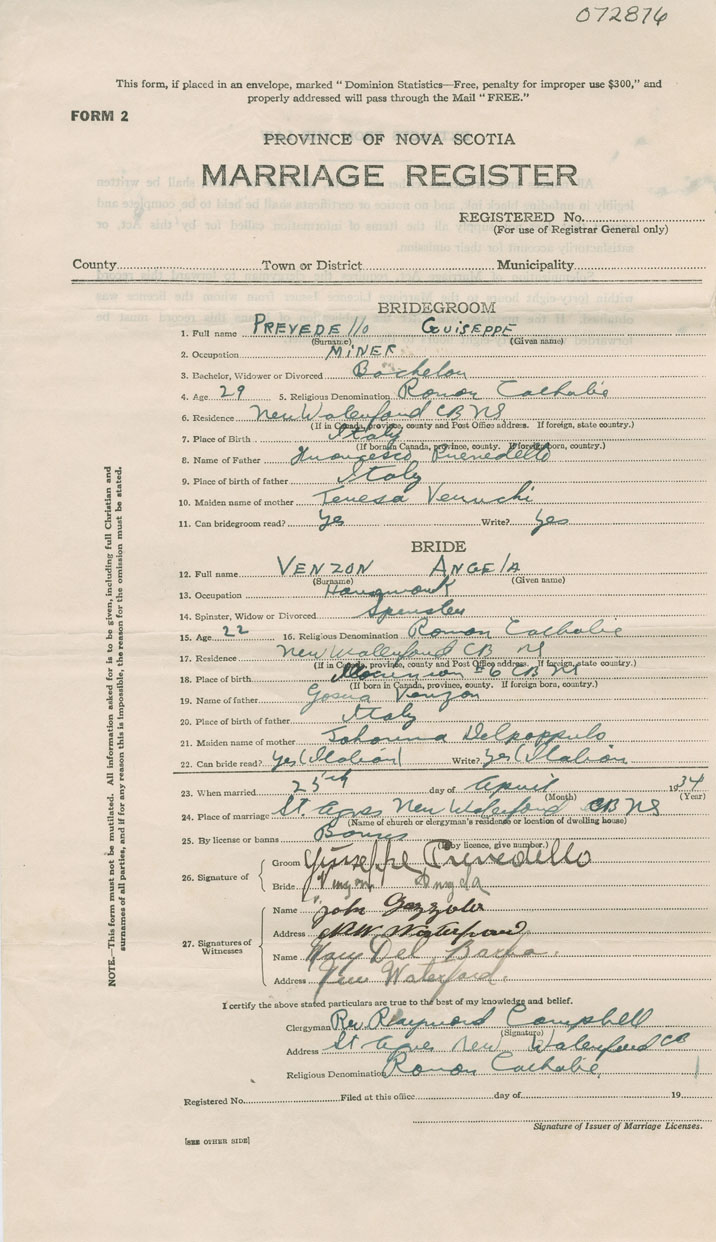 072876
This form, if placed in an envelope, marked "Dominion Statistics—Free, penalty for improper use $300," and
properly addressed will pass through the Mail "FREE."
FORM 2
PROVINCE OF NOVA SCOTIA
MARRIAGE REGISTER
REGISTERED No.
(For use of Registrar General only)
County Town or District Municipality
BRIDEGROOM
1. Full name PREVEDEllo GUISEPPE
(Surname) (Given name)
2. Occupation MINER
3. Bachelor, Widower or Divorced Bachelor
4. Age 29 5. Religious Denomination Roman Catholic
6. Residence New Waterford CB NS
(If in Canada, province, county and Post Office address. If foreign, state country.)
7. Place of Birth Italy
(If born in Canada, province, county. If foreign born, country.)
8. Name of Father Francesco Prevedello
9. Place of birth of father Italy
10. Maiden name of mother Teresa
11. Can bridegroom read? Yes Write? Yes
BRIDE
12. Full name VENZON ANGElA
(Surname) (Given name)
13. Occupation Housework
14. Spinster, Widow or Divorced Spinster
15. Age 22 16. Religious Denomination Roman Catholic
17. Residence New Waterford CB NS
(If in Canada, province, county and Post Office address. If foreign, state country.)
18. Place of birth Dominion #6 CB NS
(If born in Canada, province, county. If foreign born, country.)
19. Name of father Venzon
20. Place of birth of father Italy
21. Maiden name of mother Johanna Delpoppulo
22. Can bride read? Yes (Italian) Write? Yes (Italian
23. When married 25th day of April 1934
(Month) (Year)
24. Place of marriage St. Agnes New Waterford CB NS
(Name of church or clergyman's residence or location of dwelling house)
25. By license or banns Banns
(If by licence, give number.)
26. Signature of Groom Giuseppe Prevedello
Bride
27. Signatures of Witnesses
Name John Gazzola
Address New Waterford
Name Mary Del
Address New Waterford.
I certify the above stated particulars are true to the best of my knowledge and belief.
Clergyman Rev Raymond Campbell
(Signature)
Address St Agnes New Waterford CB
Religious Denomination Roman Catholic
Registered No. Filed at this office day of 19
Signature of Issuer of Marriage Licenses.
[SEE OTHER SIDE]
NOTE.—This form must not be mutilated. All information asked for is to be given, including full Christian and
surnames of all parties, and if for any reason this is impossible, the reason for the omission must be stated.